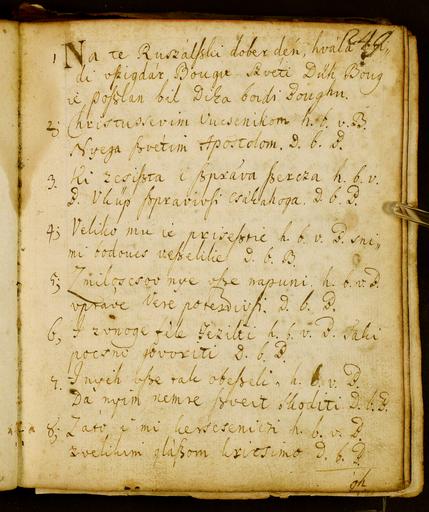 249.
1 Na te Ruszálszki dober dén, hvála
di vszigdár Bougu. Szvéti Düh Boug
ié poszlan bil Dika boidi Boughu.
2; Christussevim Vucsenikom h. b. v. B.
Nyega szvétim Apostolom. D. b. B.
3. Ki zcsiszta i szpráva szercza h. b. v.
B. Vküp szpravivsi csákahoga. D. b. B.
4; Veliko mu ié priseszté h. b. v. B. sni,
mi bodoucs veszelilié D. b. B.
5; Zmiloscsov nye vsze napuni, h. b. v. B.
vpráve Vere poterdivsi. D. b. B.
6, I vnoge féle Jezikci h. b. v. B. Taki
pocsno govoriti D. b. B.
7. I nyih vsze tak obeszeli, h. b. v. B.
Da nyim nemre szveit skoditi D. b. B.
8; Zato i mi kerscsenicti h. b. v. B.
zvelikim glászom kricsimo D. b. B.
oh